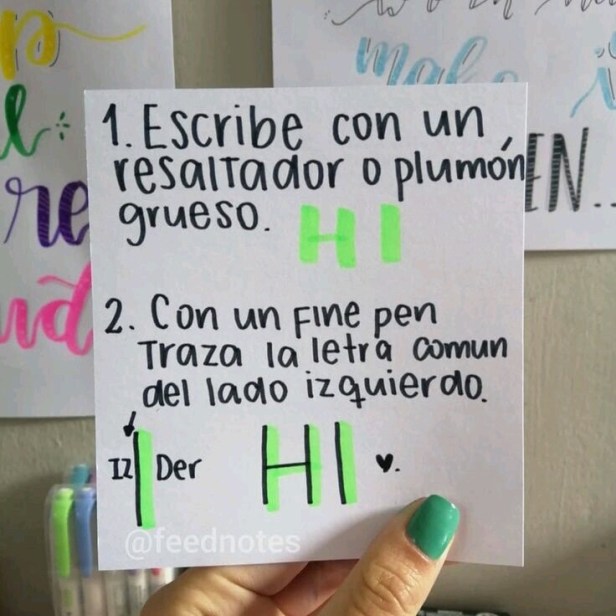 make
EN...
1. Escribe con un
resaltador o plumón
grueso. HI
2. Con un fine pen
Traza la letra comun
del lado izquierdo.
IZ Der HI ♥.
@feednotes